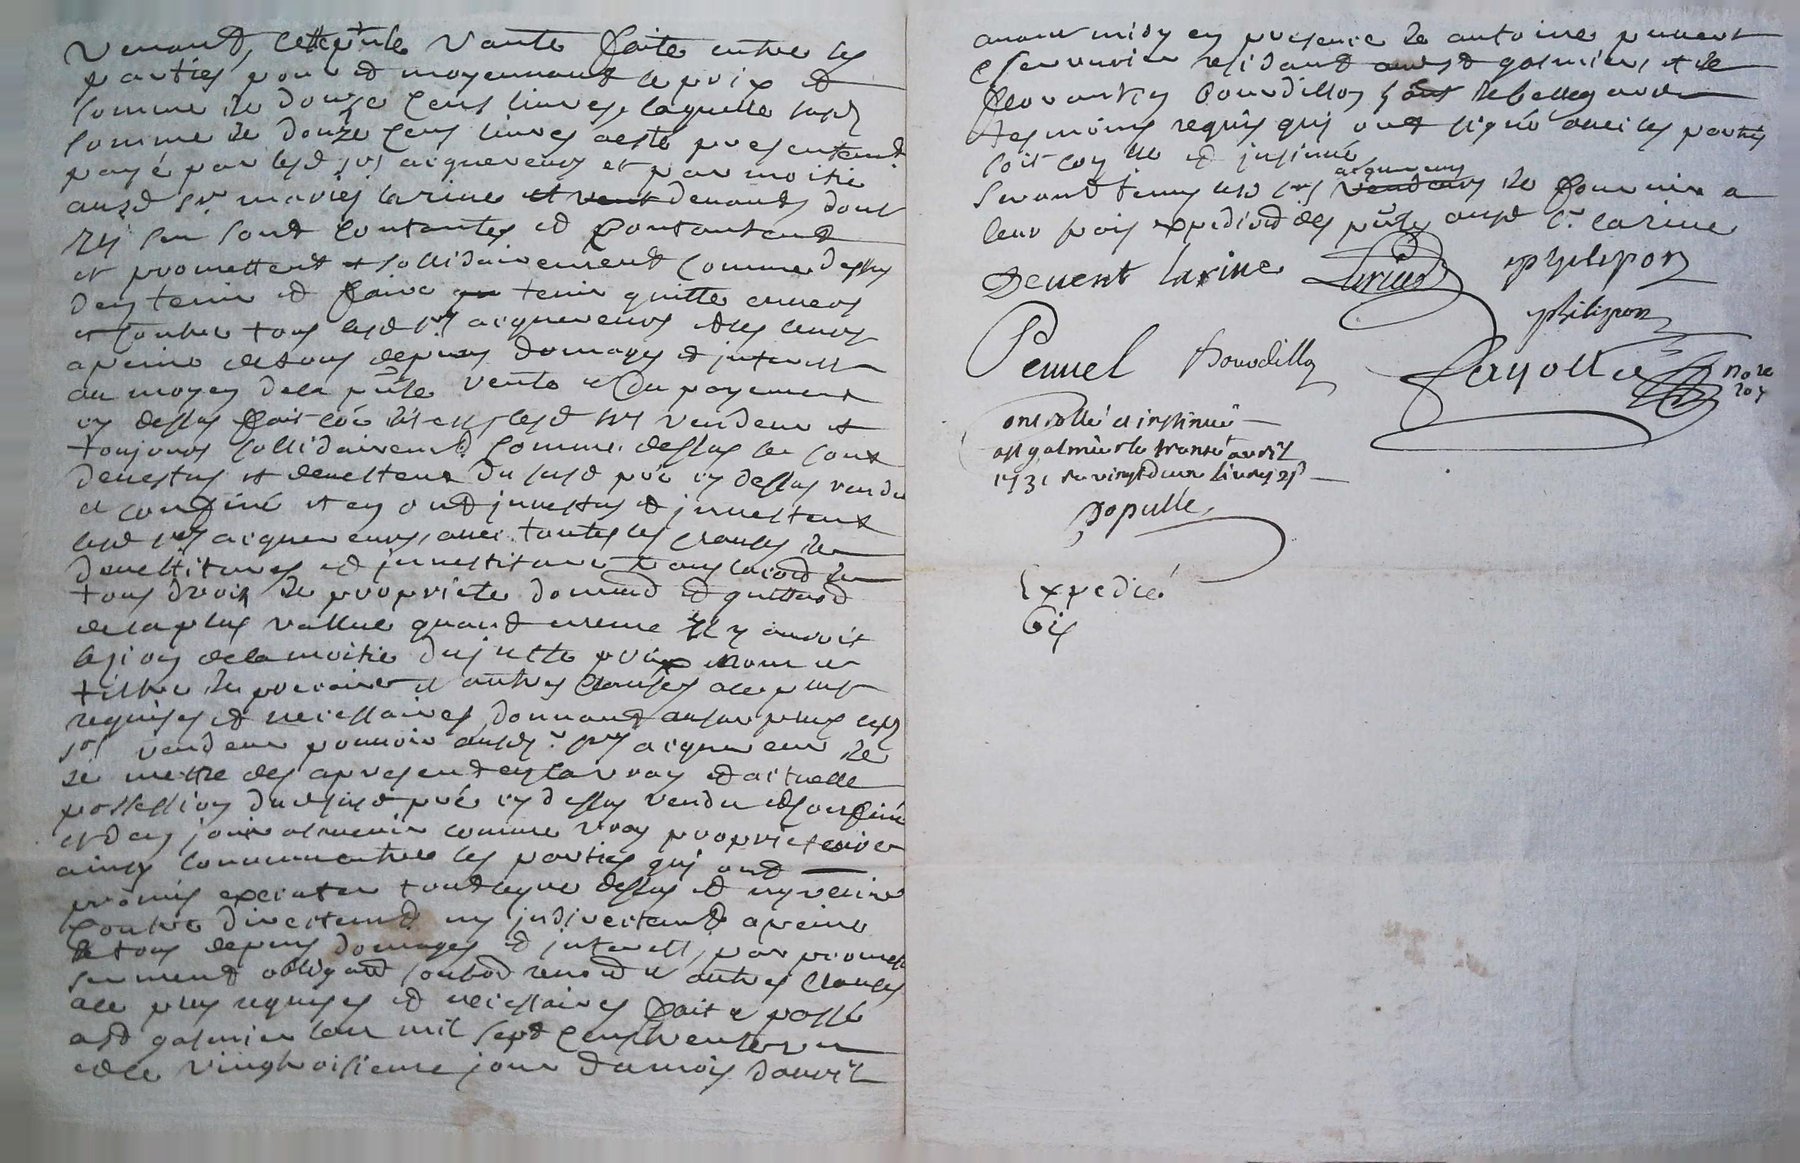 venand, cette pnte vante faite entre les
parties pour et moyennant le prix et
somme de douze cens livres, laquelle susd
somme de douze cens livres a este presentemt
payé par lesd srs acquereurs et par moitié
ausd sr mariés larine et vent devant, dont
ils sen sont contantes et contantent
et promettent et sollidairement comme dessus
den tenir et faire tenir quitte envers
et contre tous lesd srs acquereurs et les leurs
a peine de tous depens domages et interest
au moyen de la pnte vente et du payement
cy dessus fait lesd srs vendeur et
toujours sollidairemt comme dessus se sont
devestus et devestent du susd pré cy dessus vendu
et confiné et en ont investus et investent
lesd srs acquereurs, avec toutes les clauses de
devestitures et investiture translacion de
tous droits de propriete donnand et quittand
de la plus vallue quand mesme il y auroit
lesion de la moitie du juste prix nom et
tiltre de precaire et autres clauses a ce plus
requises et necessaires, donnant au surplus lesd
srs vendeur pouvoir ausd srs acquereur de
se mettre des a present en la vray et actuelle
possession du susd pré cy dessus vendu et confiné
et den jouir a l'avenir comme vray proprietaire
ainsy convenu entre les parties qui ont
promis executer tout ce que dessus et ny venir
contre directemt ny indirectemt a peine
de tous depens domages et interest, par promesse
serment obligaon soubmon renon et autres clauses
a ce plus requises et necessaires fait et passé
a sd galmier lan mil sept cens trente un
et le vingtroisieme jour du mois davril
avant midy en presence de antoine pennel
serrurier residant aud st galmier, et de
bourdillon de bellegarde
tesmoins requis qui ont signé avec les parties
soit con lle et insinué
acquereurs
seront tenus lesd srs vendeurs de fournir a
leur frais expedition des pntes ausd sr larine
Devent larine larine philipon
philipon
Pennel bourdillon payolle nore
roy
controllé et insinué
a st galmier le trente avril
1731 r vingt deux livres
Dopulle
Expedié
Gis